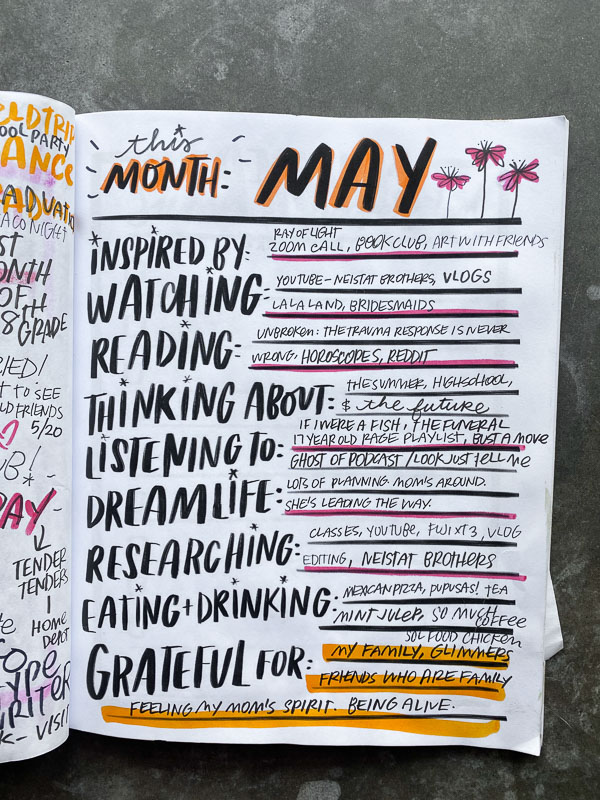 OOL PARTY
ACO NIGHT
8TH GRADE
TO SEE
FRIENDS
5/20
TENDER
TENDERS
HOME
DEPOT
VISIT
this
MONTH: MAY
INSPIRED BY: RAY OF LIGHT
ZOOM CALL, BOOK CLUB, ART WITH FRIENDS
WATCHING- YOUTUBE - NEISTAT BROTHERS, VLOGS
LA LA LAND, BRIDESMAIDS
READING: UNBROKEN: THE TRAUMA RESPONSE IS NEVER
WRONG, HOROSCOPES, REDDIT
THINKING ABOUT: THE SUMMER, HIGHSCHOOL,
& the future
LISTENING TO: IF I WERE A FISH, THE FUNERAL
17 YEAR OLD RAGE PLAYLIST, BUST A MOVE
GHOST OF PODCAST / LOOK JUST TELL ME
DREAM LIFE: LOTS OF PLANNING. MOM'S AROUND.
SHE'S LEADING THE WAY.
RESEARCHING: CLASSES, YOUTUBE, FUJI XT3, VLOG
EDITING, NEISTAT BROTHERS
EATING + DRINKING: MEXICAN PIZZA, PUPUSAS! TEA
MINT JULEP, SO MUCH COFFEE
SOL FOOD CHICKEN
GRATEFUL FOR: MY FAMILY, GLIMMERS
FRIENDS WHO ARE FAMILY
FEELING MY MOM'S SPIRIT. BEING ALIVE.